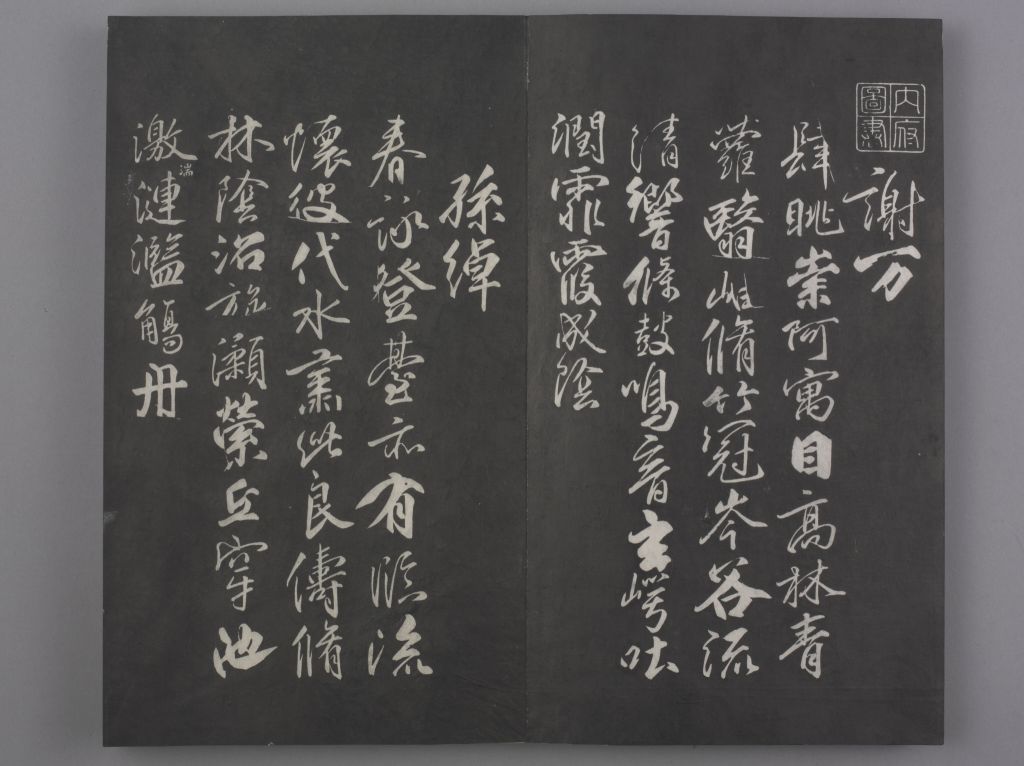 內府圖書
謝万
肆眺崇阿寓目高林青
蘿翳岫脩竹冠岑谷流
清響條鼓鳴音玄崿吐
潤霏霞成陰
孫綽
春詠登臺亦有臨流
懷彼代水肅此良儔脩
林陰沼旋瀨縈丘穿池
激湍漣濫觴舟